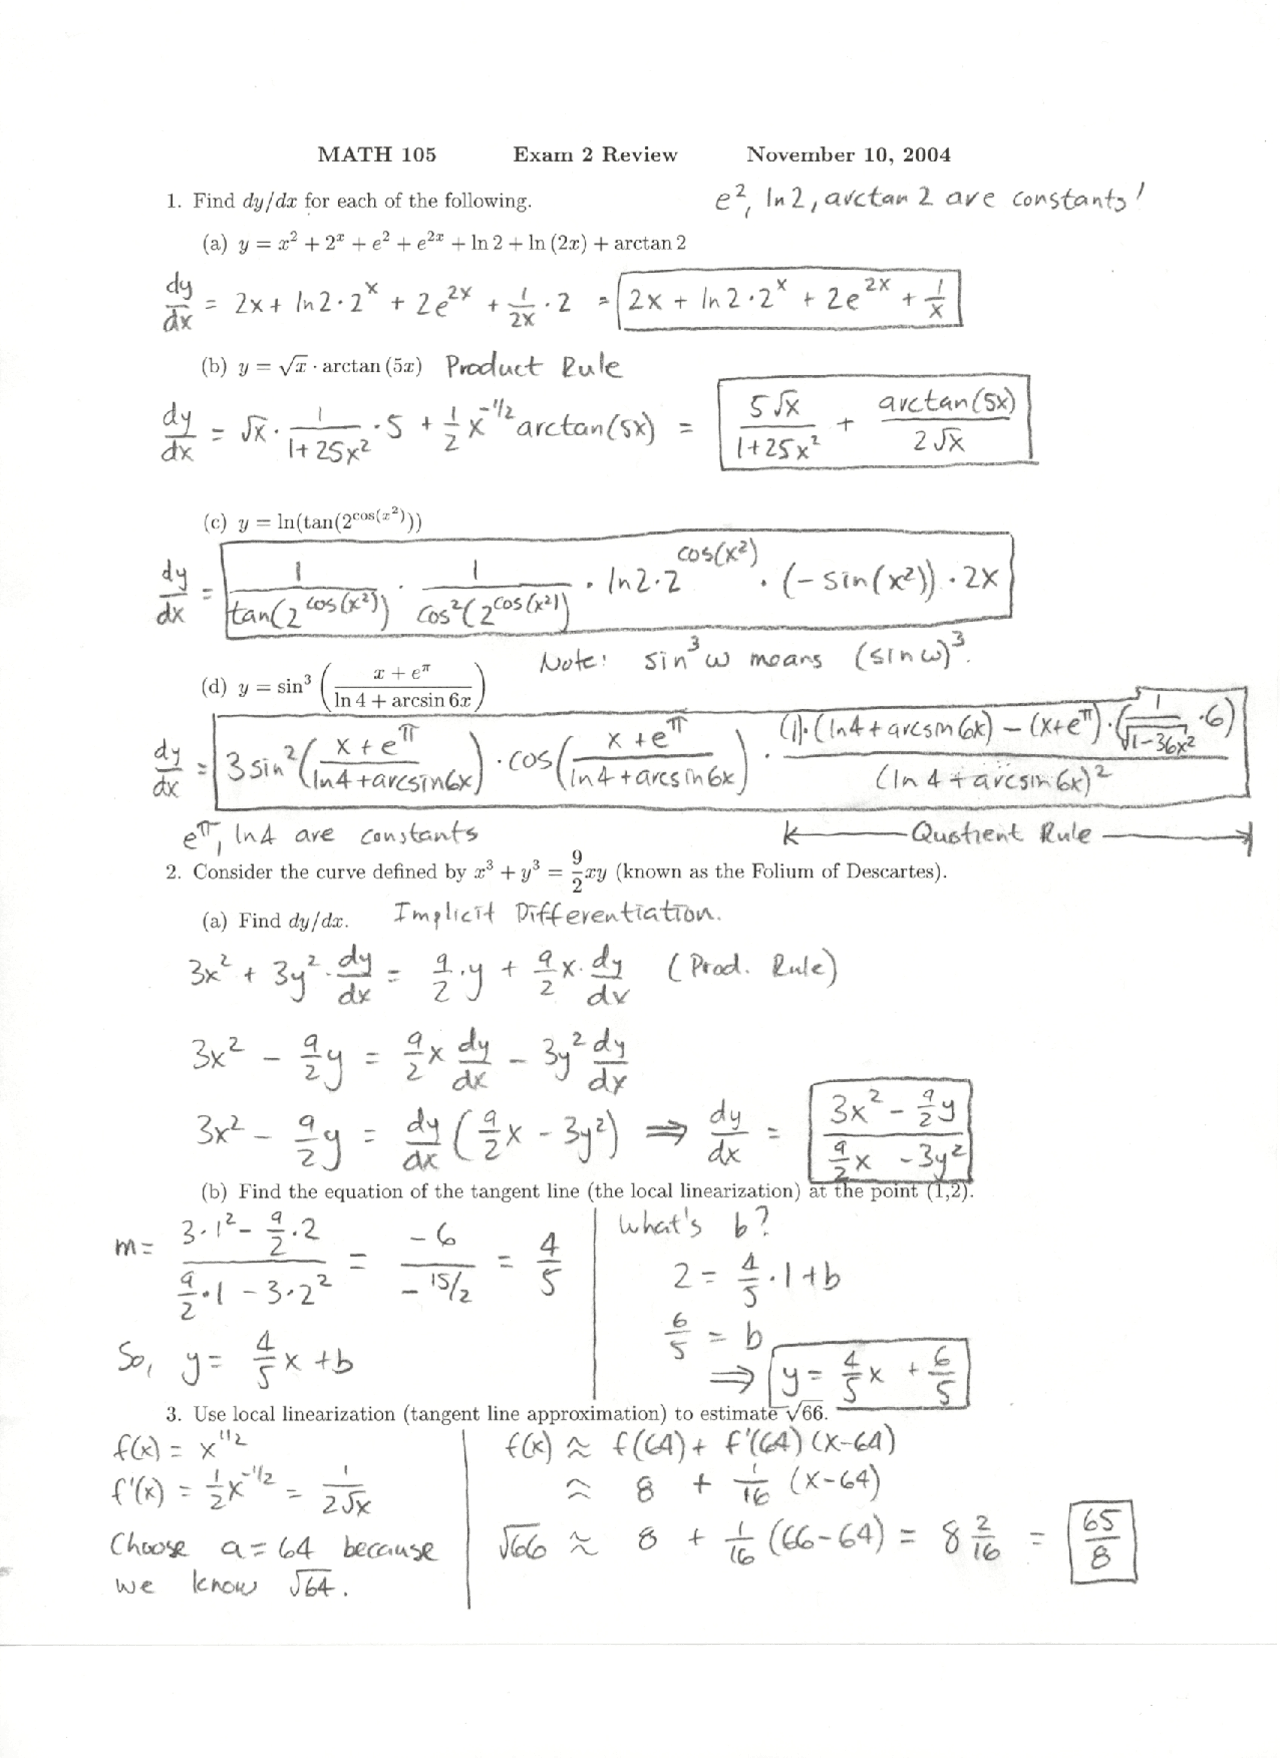 MATH 105 Exam 2 Review November 10, 2004
1. Find dy/dx for each of the following.
e², ln 2, arctan 2 are constants!
(a) y = x² + 2ˣ + e² + e²ˣ + ln 2 + ln (2x) + arctan 2
dy/dx = 2x + ln2·2ˣ + 2e²ˣ + 1/2x · 2 = 2x + ln2·2ˣ + 2e²ˣ + 1/x
(b) y = √x · arctan (5x) Product Rule
dy/dx = √x · 1/(1+25x²) · 5 + 1/2 x^(-1/2) arctan(5x) = 5√x/(1+25x²) + arctan(5x)/(2√x)
(c) y = ln(tan(2^cos(x²)))
dy/dx = 1/tan(2^cos(x²)) · 1/cos²(2^cos(x²)) · ln2·2^cos(x²) · (-sin(x²)) · 2x
Note: sin³w means (sin w)³.
(d) y = sin³ ((x + e^π)/(ln 4 + arcsin 6x))
dy/dx = 3 sin²((x + e^π)/(ln4 + arcsin6x)) · cos((x + e^π)/(ln4 + arcsin6x)) · ((1)·(ln4 + arcsin6x) − (x+e^π)·(1/√(1−36x²) · 6))/(ln 4 + arcsin 6x)²
e^π, ln4 are constants Quotient Rule
2. Consider the curve defined by x³ + y³ = 9/2 xy (known as the Folium of Descartes).
(a) Find dy/dx. Implicit Differentiation.
3x² + 3y² · dy/dx = 9/2 · y + 9/2 x · dy/dx (Prod. Rule)
3x² − 9/2 y = 9/2 x dy/dx − 3y² dy/dx
3x² − 9/2 y = dy/dx (9/2 x − 3y²) ⇒ dy/dx = (3x² − 9/2 y)/(9/2 x − 3y²)
(b) Find the equation of the tangent line (the local linearization) at the point (1,2).
m = (3·1² − 9/2·2)/(9/2·1 − 3·2²) = −6/(−15/2) = 4/5
So, y = 4/5 x + b
What's b?
2 = 4/5 · 1 + b
6/5 = b
⇒ y = 4/5 x + 6/5
3. Use local linearization (tangent line approximation) to estimate √66.
f(x) = x^(1/2)
f'(x) = 1/2 x^(-1/2) = 1/(2√x)
Choose a = 64 because
we know √64.
f(x) ≈ f(64) + f'(64)(x−64)
≈ 8 + 1/16 (x−64)
√66 ≈ 8 + 1/16 (66−64) = 8 2/16 = 65/8